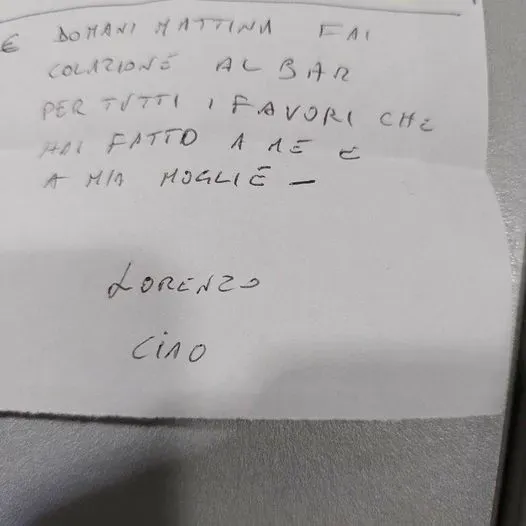 E DOMANI MATTINA FAI
COLAZIONE AL BAR
PER TUTTI I FAVORI CHE
HAI FATTO A ME E
A MIA MOGLIE -
LORENZO
CIAO